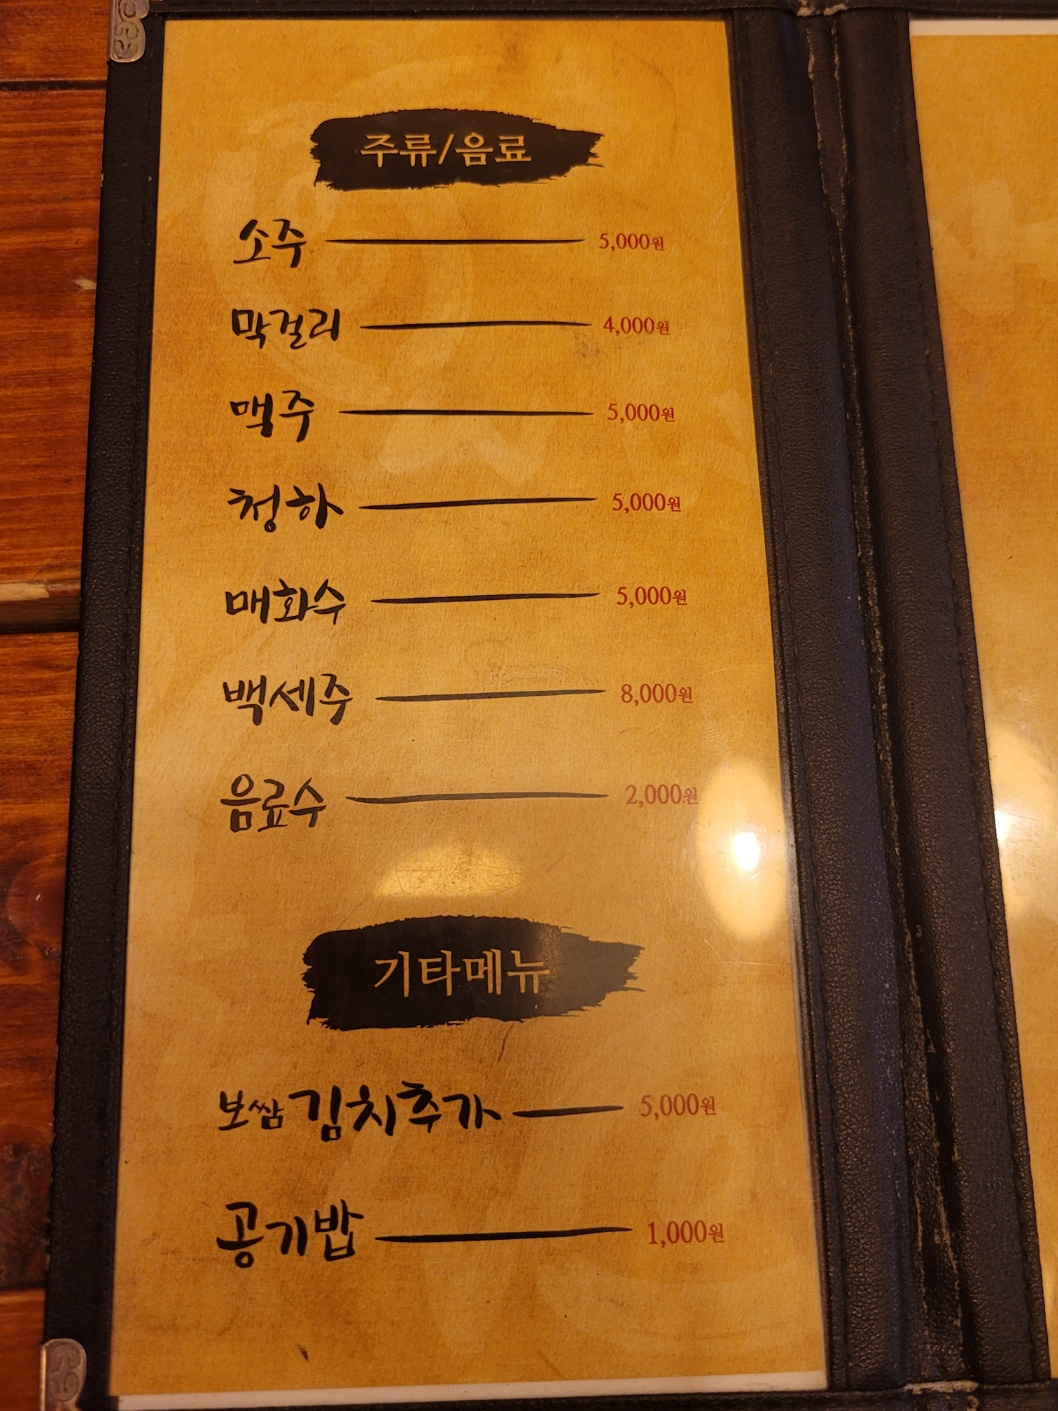 주류/음료
소주 5,000원
막걸리 4,000원
맥주 5,000원
청하 5,000원
매화수 5,000원
백세주 8,000원
음료수 2,000원
기타메뉴
보쌈 김치추가 5,000원
공기밥 1,000원